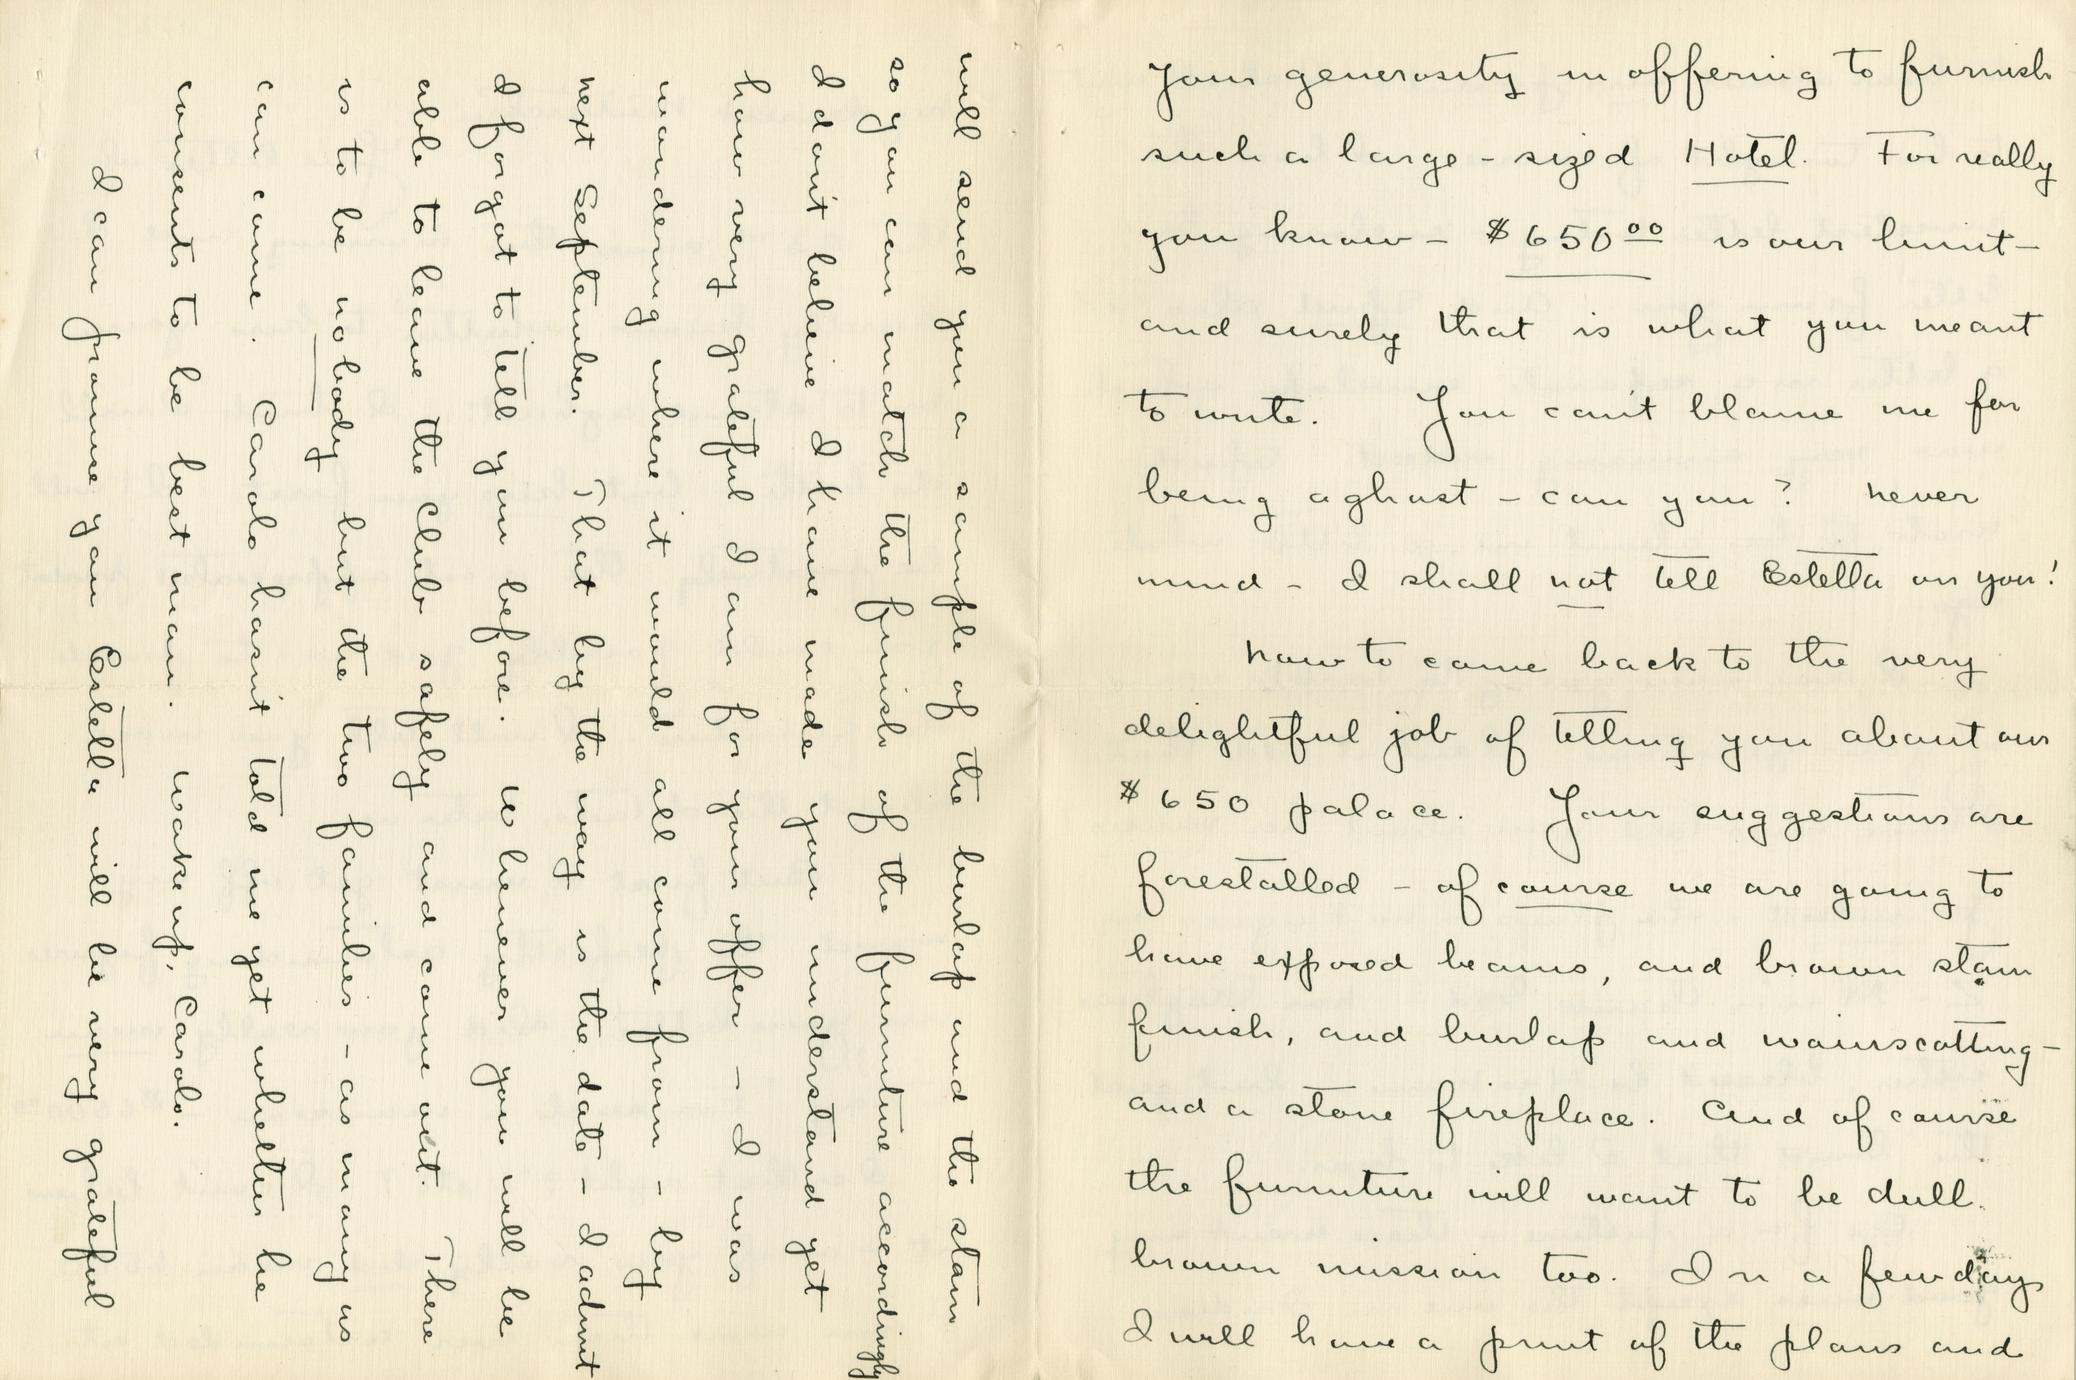 Your generosity in offering to furnish
such a large-sized Hotel. For really
you know - $650.00 is our limit -
and surely that is what you meant
to write. You can't blame me for
being aghast - can you? Never
mind - I shall not tell Estella on you!
Now to come back to the very
delightful job of telling you about our
$650 palace. Your suggestions are
forestalled - of course we are going to
have exposed beams, and brown stain
finish, and burlap and wainscotting -
and a stone fireplace. And of course
the furniture will want to be dull
brown mission too. In a few days
I will have a print of the plans and
will send you a sample of the burlap and the stain
so you can match the finish of the furniture accordingly
I don't believe I have made you understand yet
how very grateful I am for your offer - I was
wondering where it would all come from - by
next September. That by the way is the date - I admit
I forgot to tell you before. Whenever you will be
able to leave the club safely and come out. There
is to be nobody but the two families - as many as
can come. Carolo hasn't told me yet whether he
consents to be best man. Wake up, Carolo.
I can promise you Estella will be very grateful